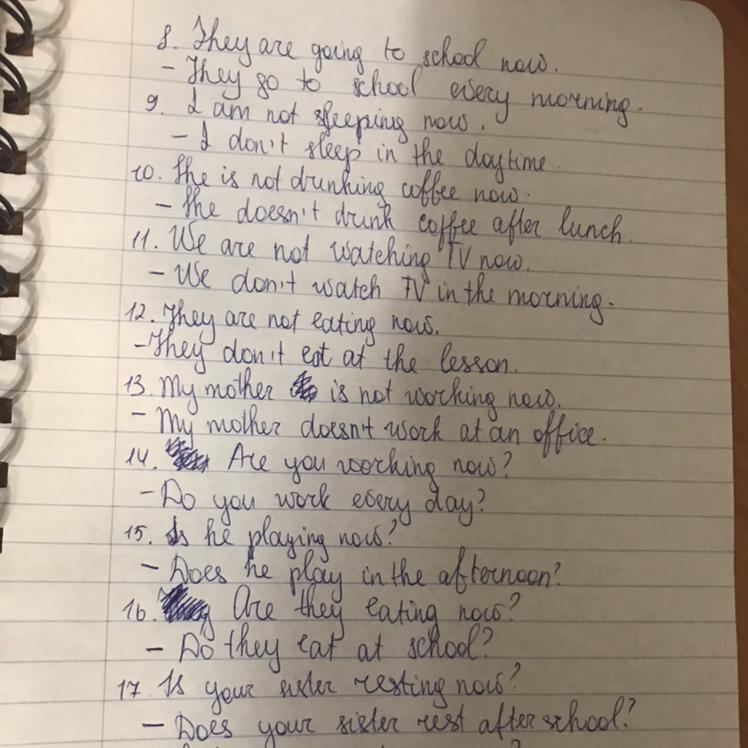 8. They are going to school now.
- They go to school every morning.
9. I am not sleeping now.
- I don't sleep in the daytime.
10. She is not drinking coffee now.
- She doesn't drink coffee after lunch.
11. We are not watching TV now.
- We don't watch TV in the morning.
12. They are not eating now.
- They don't eat at the lesson.
13. My mother is not working now.
- My mother doesn't work at an office.
14. Are you working now?
- Do you work every day?
15. Is he playing now?
- Does he play in the afternoon?
16. Are they eating now?
- Do they eat at school?
17. Is your sister resting now?
- Does your sister rest after school?